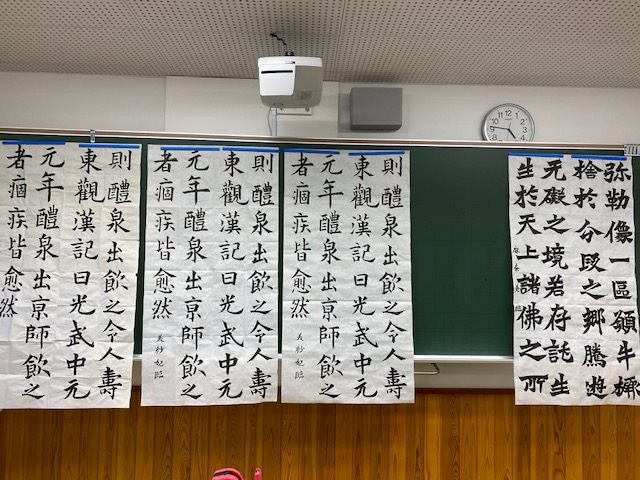 弥勒像一區願牛橛
捨於分段之鄉騰遊
无礙之境若存託生
生於天上諸佛之所
則醴泉出飲之令人壽
東觀漢記曰光武中元
元年醴泉出京師飲之
者痼疾皆愈然
美紗妃臨
則醴泉出飲之令人壽
東觀漢記曰光武中元
元年醴泉出京師飲之
者痼疾皆愈然
美紗妃臨
則醴泉出飲之令人壽
東觀漢記曰光武中元
元年醴泉出京師飲之
者痼疾皆愈然